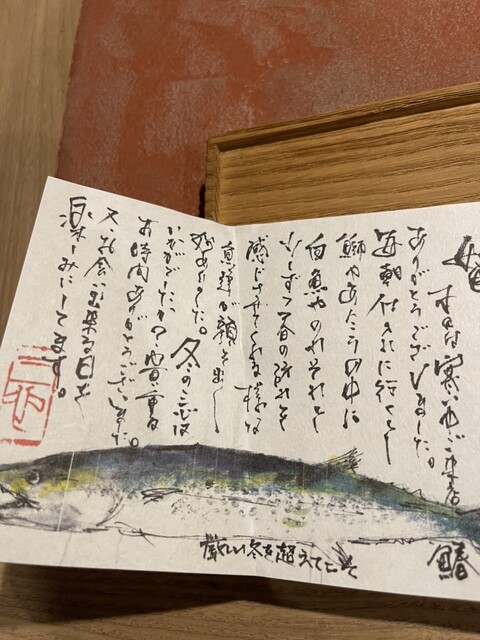 本日は寒い中ご来店
ありがとうございました。
毎朝仕入れに行くと
鰤やあんこうの中に
白魚やのれそれと
少しずつ春の訪れを
感じさせてくれる様な
魚達が顔を出し
始めました。冬の三心は
いかがでしたか?貴重な
お時間ありがとうございました。
又お会い出来る日を
楽しみにしてます。
厳しい冬を超えてこそ
鰆